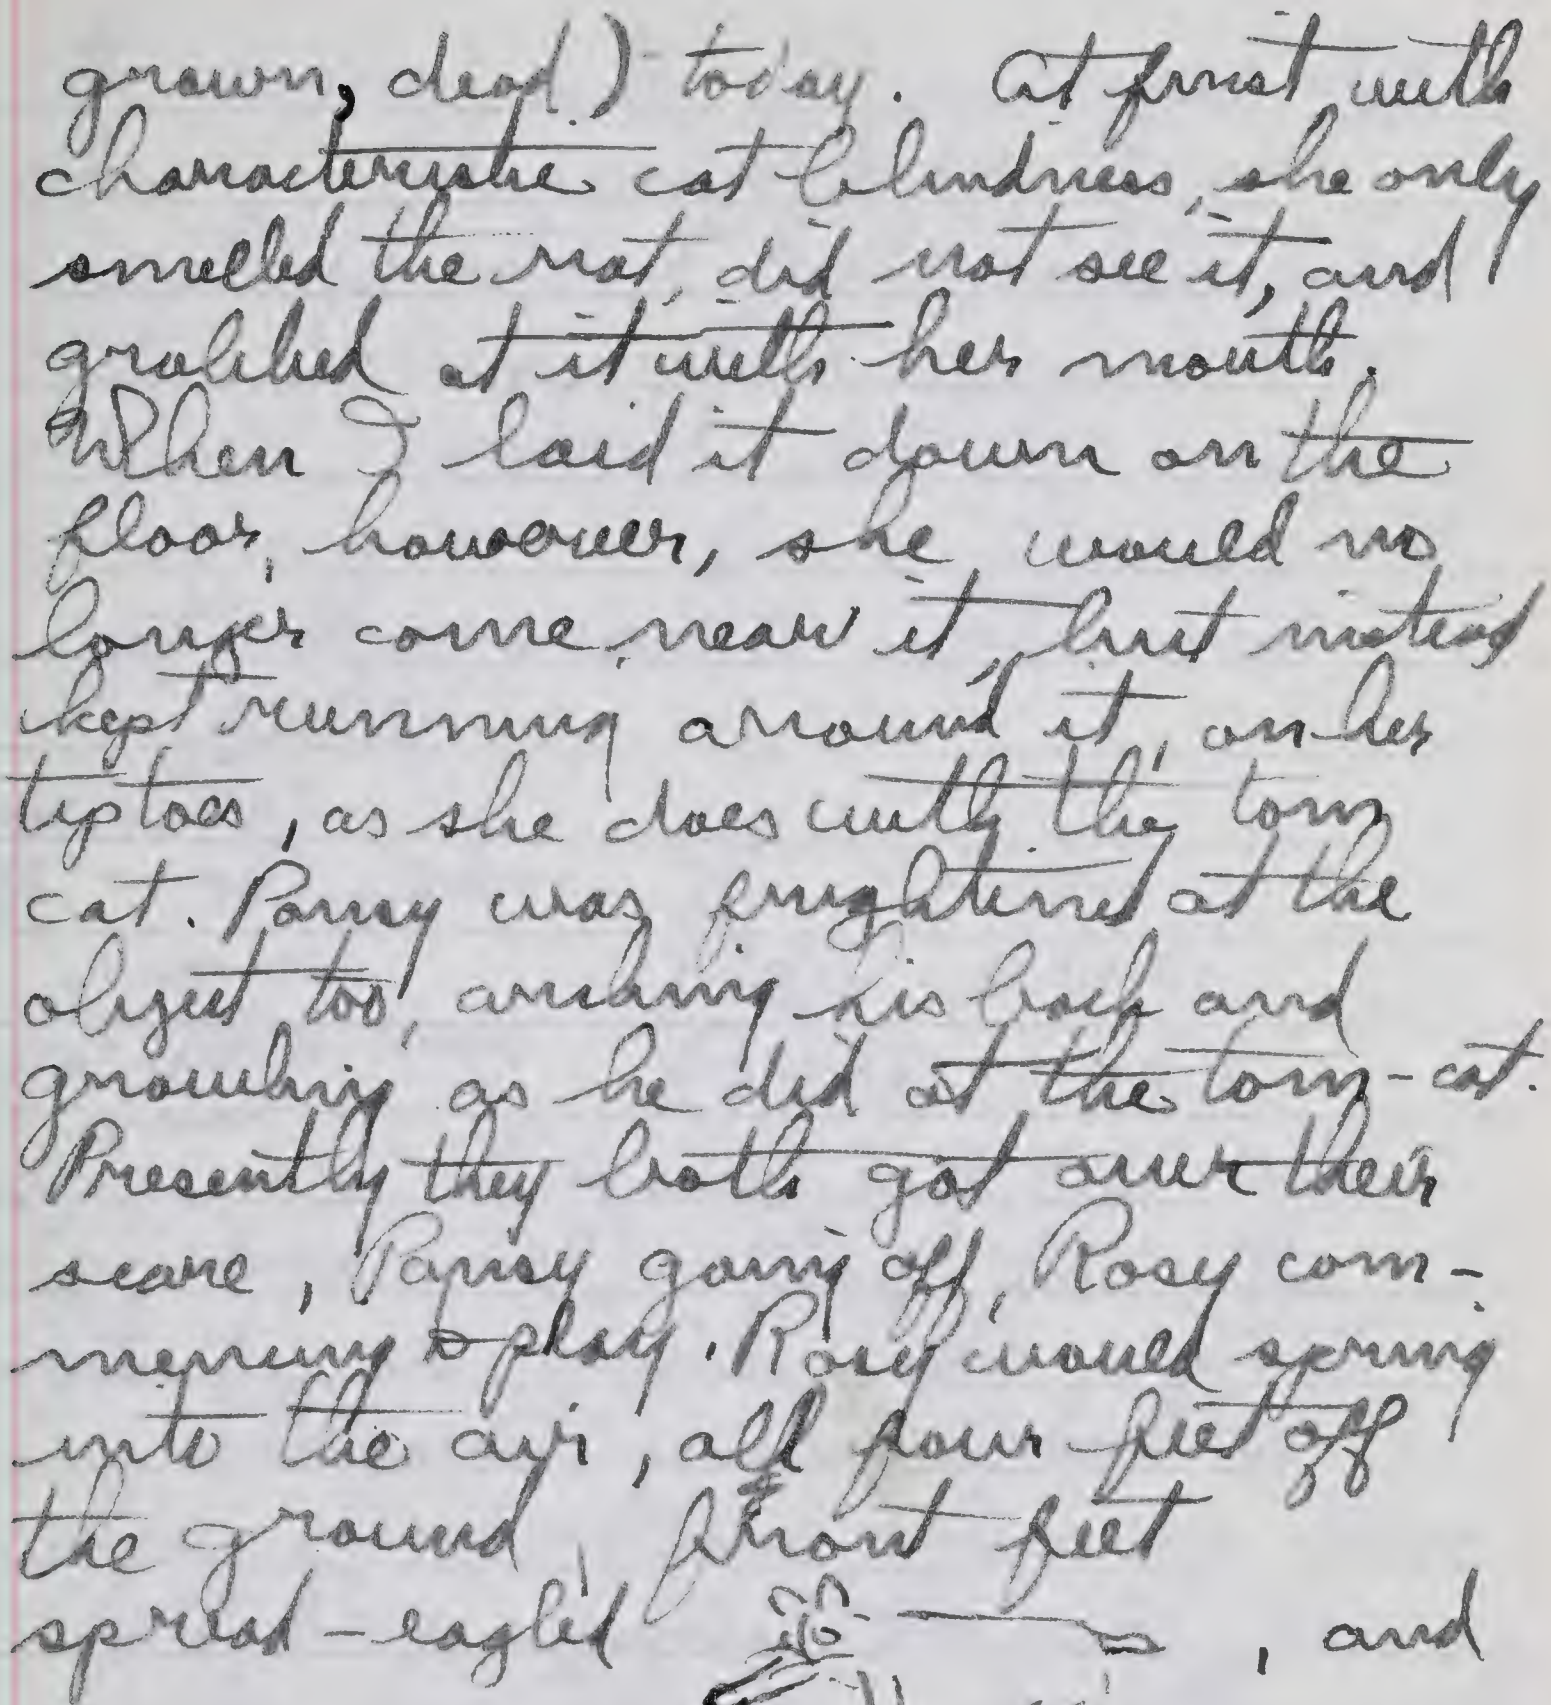 grown, dead) today. At first with
characteristic cat blindness, she only
smelled the rat, did not see it, and
grabbed at it with her mouth.
When I laid it down on the
floor, however, she would no
longer come near it, but instead
kept running around it, on her
tiptoes, as she does with the tom
cat. Pansy was frightened at the
object too, arching his back and
growling as he did at the tom-cat.
Presently they both got over their
scare, Pansy going off, Rosy com-
mencing to play. Rosy would spring
into the air, all four feet off
the ground, front feet
spread-eagled , and